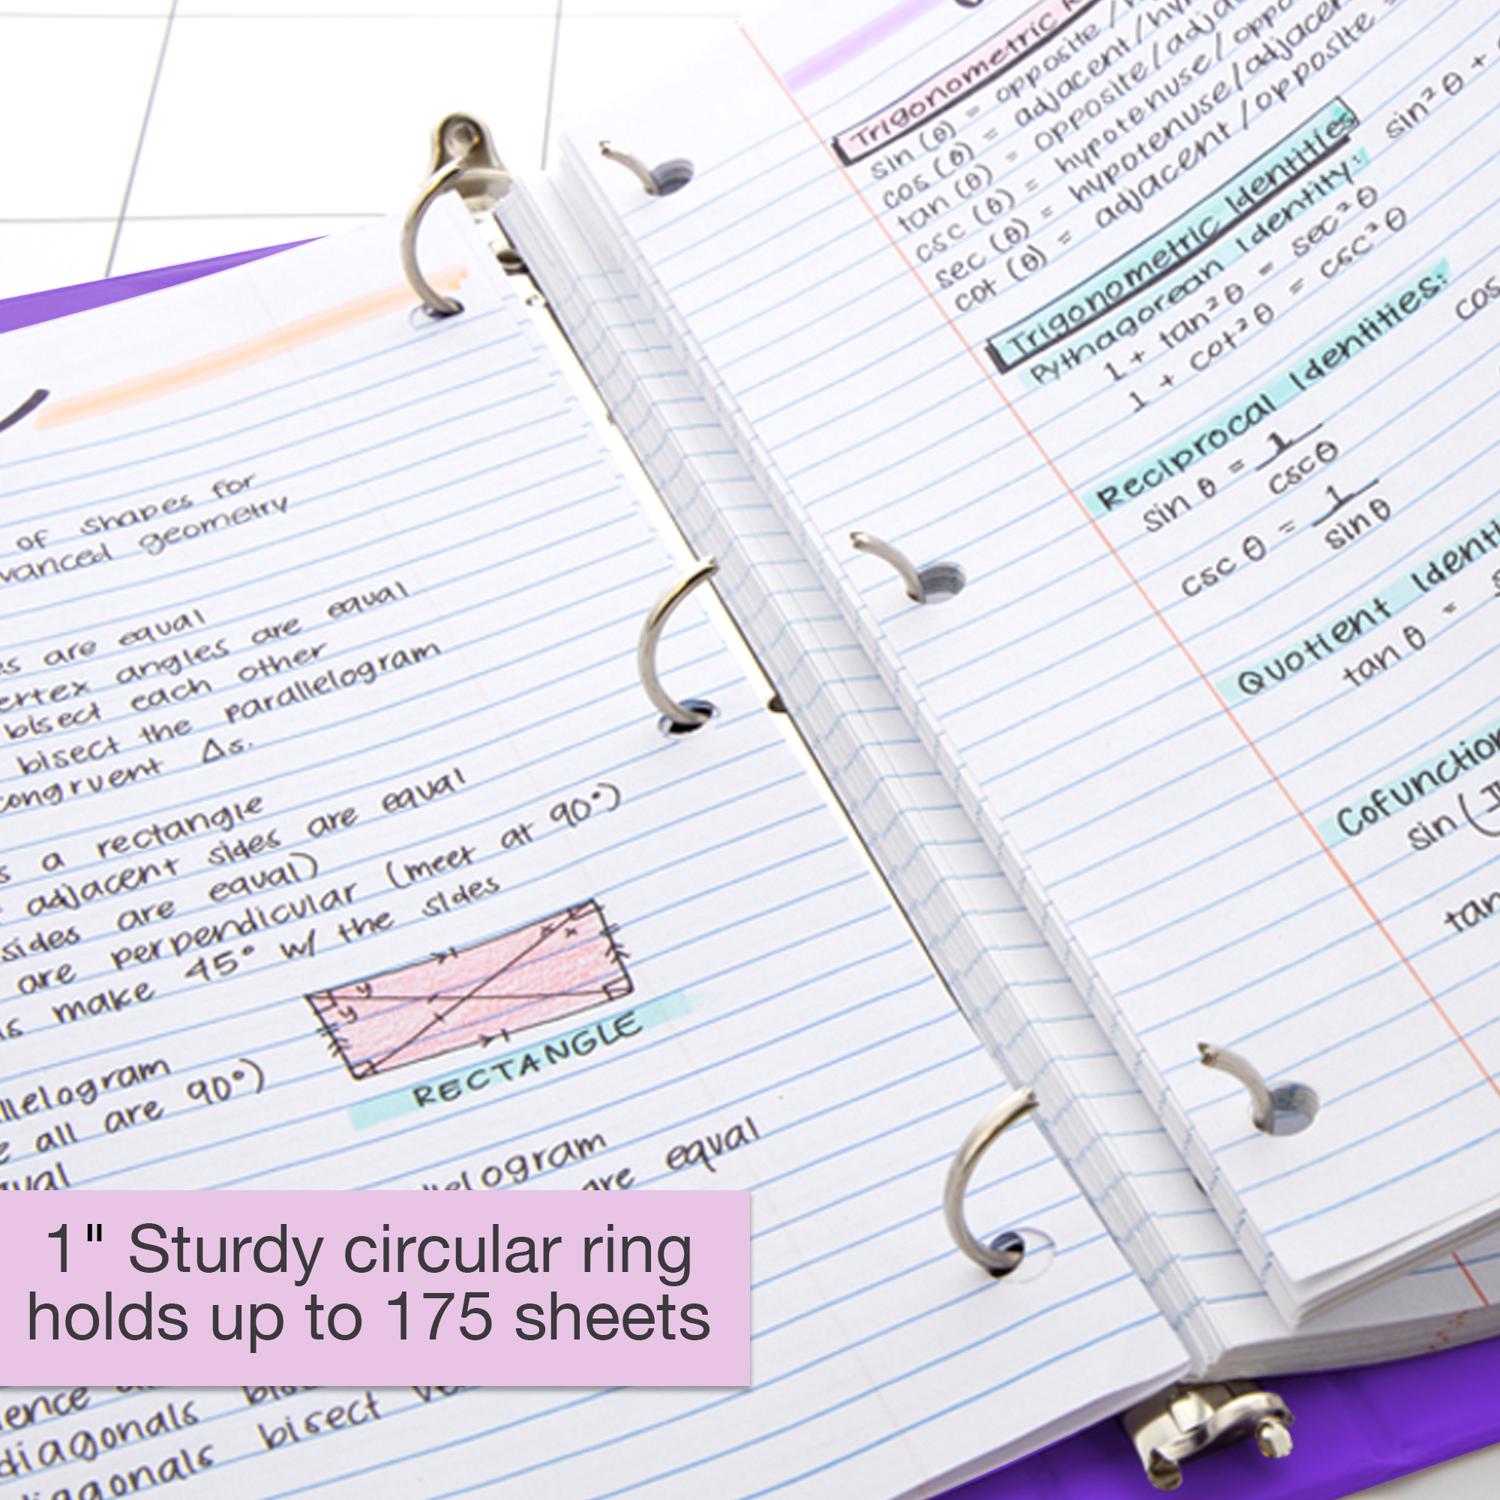 of shapes for
vanced geometry
es are equal
ertex angles are equal
bisect each other
bisect the parallelogram
congruent Δs.
s a rectangle
adjacent sides are equal
sides are equal)
are perpendicular (meet at 90°)
make 45° w/ the sides
RECTANGLE
llelogram
all are 90°)
llelogram
are equal
1" Sturdy circular ring
holds up to 175 sheets
diagonals
diagonals bisect
Trigonometric
sin (θ) = opposite /
cos (θ) = adjacent/hy
tan (θ) = opposite/adja
csc (θ) = hypotenuse/oppo
sec (θ) = hypotenuse/adjacen
cot (θ) = adjacent/opposite
Trigonometric Identities
Pythagorean Identity: sin²θ +
1 + tan²θ = sec²θ
1 + cot²θ = csc²θ
Reciprocal Identities:
sin θ = 1/cscθ
cos
csc θ = 1/sinθ
Quotient Identi
tan θ =
Cofunction
sin (
tan